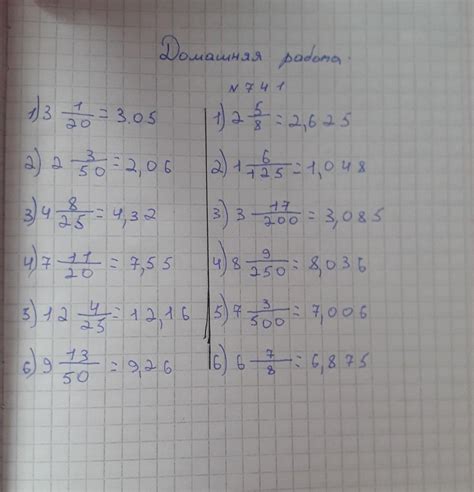 Домашняя работа.
N 741
1) 3 1/20 = 3.05
2) 2 3/50 = 2,06
3) 4 8/25 = 4,32
4) 7 11/20 = 7,55
5) 12 4/25 = 12,16
6) 9 13/50 = 9,26
1) 2 5/8 = 2,625
2) 1 6/125 = 1,048
3) 3 17/200 = 3,085
4) 8 9/250 = 8,036
5) 7 3/500 = 7,006
6) 6 7/8 = 6,875